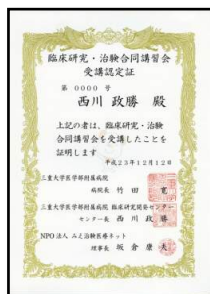 臨床研究・治験合同講習会
受講認定証
第 0000 号
西川 政勝 殿
上記の者は、臨床研究・治験
合同講習会を受講したことを
証明します
平成23年12月12日
三重大学医学部附属病院
病院長 竹田 寛
三重大学医学部附属病院 臨床研究開発センター
センター長 西川 政勝
NPO法人 みえ治験医療ネット
理事長 坂倉 康夫